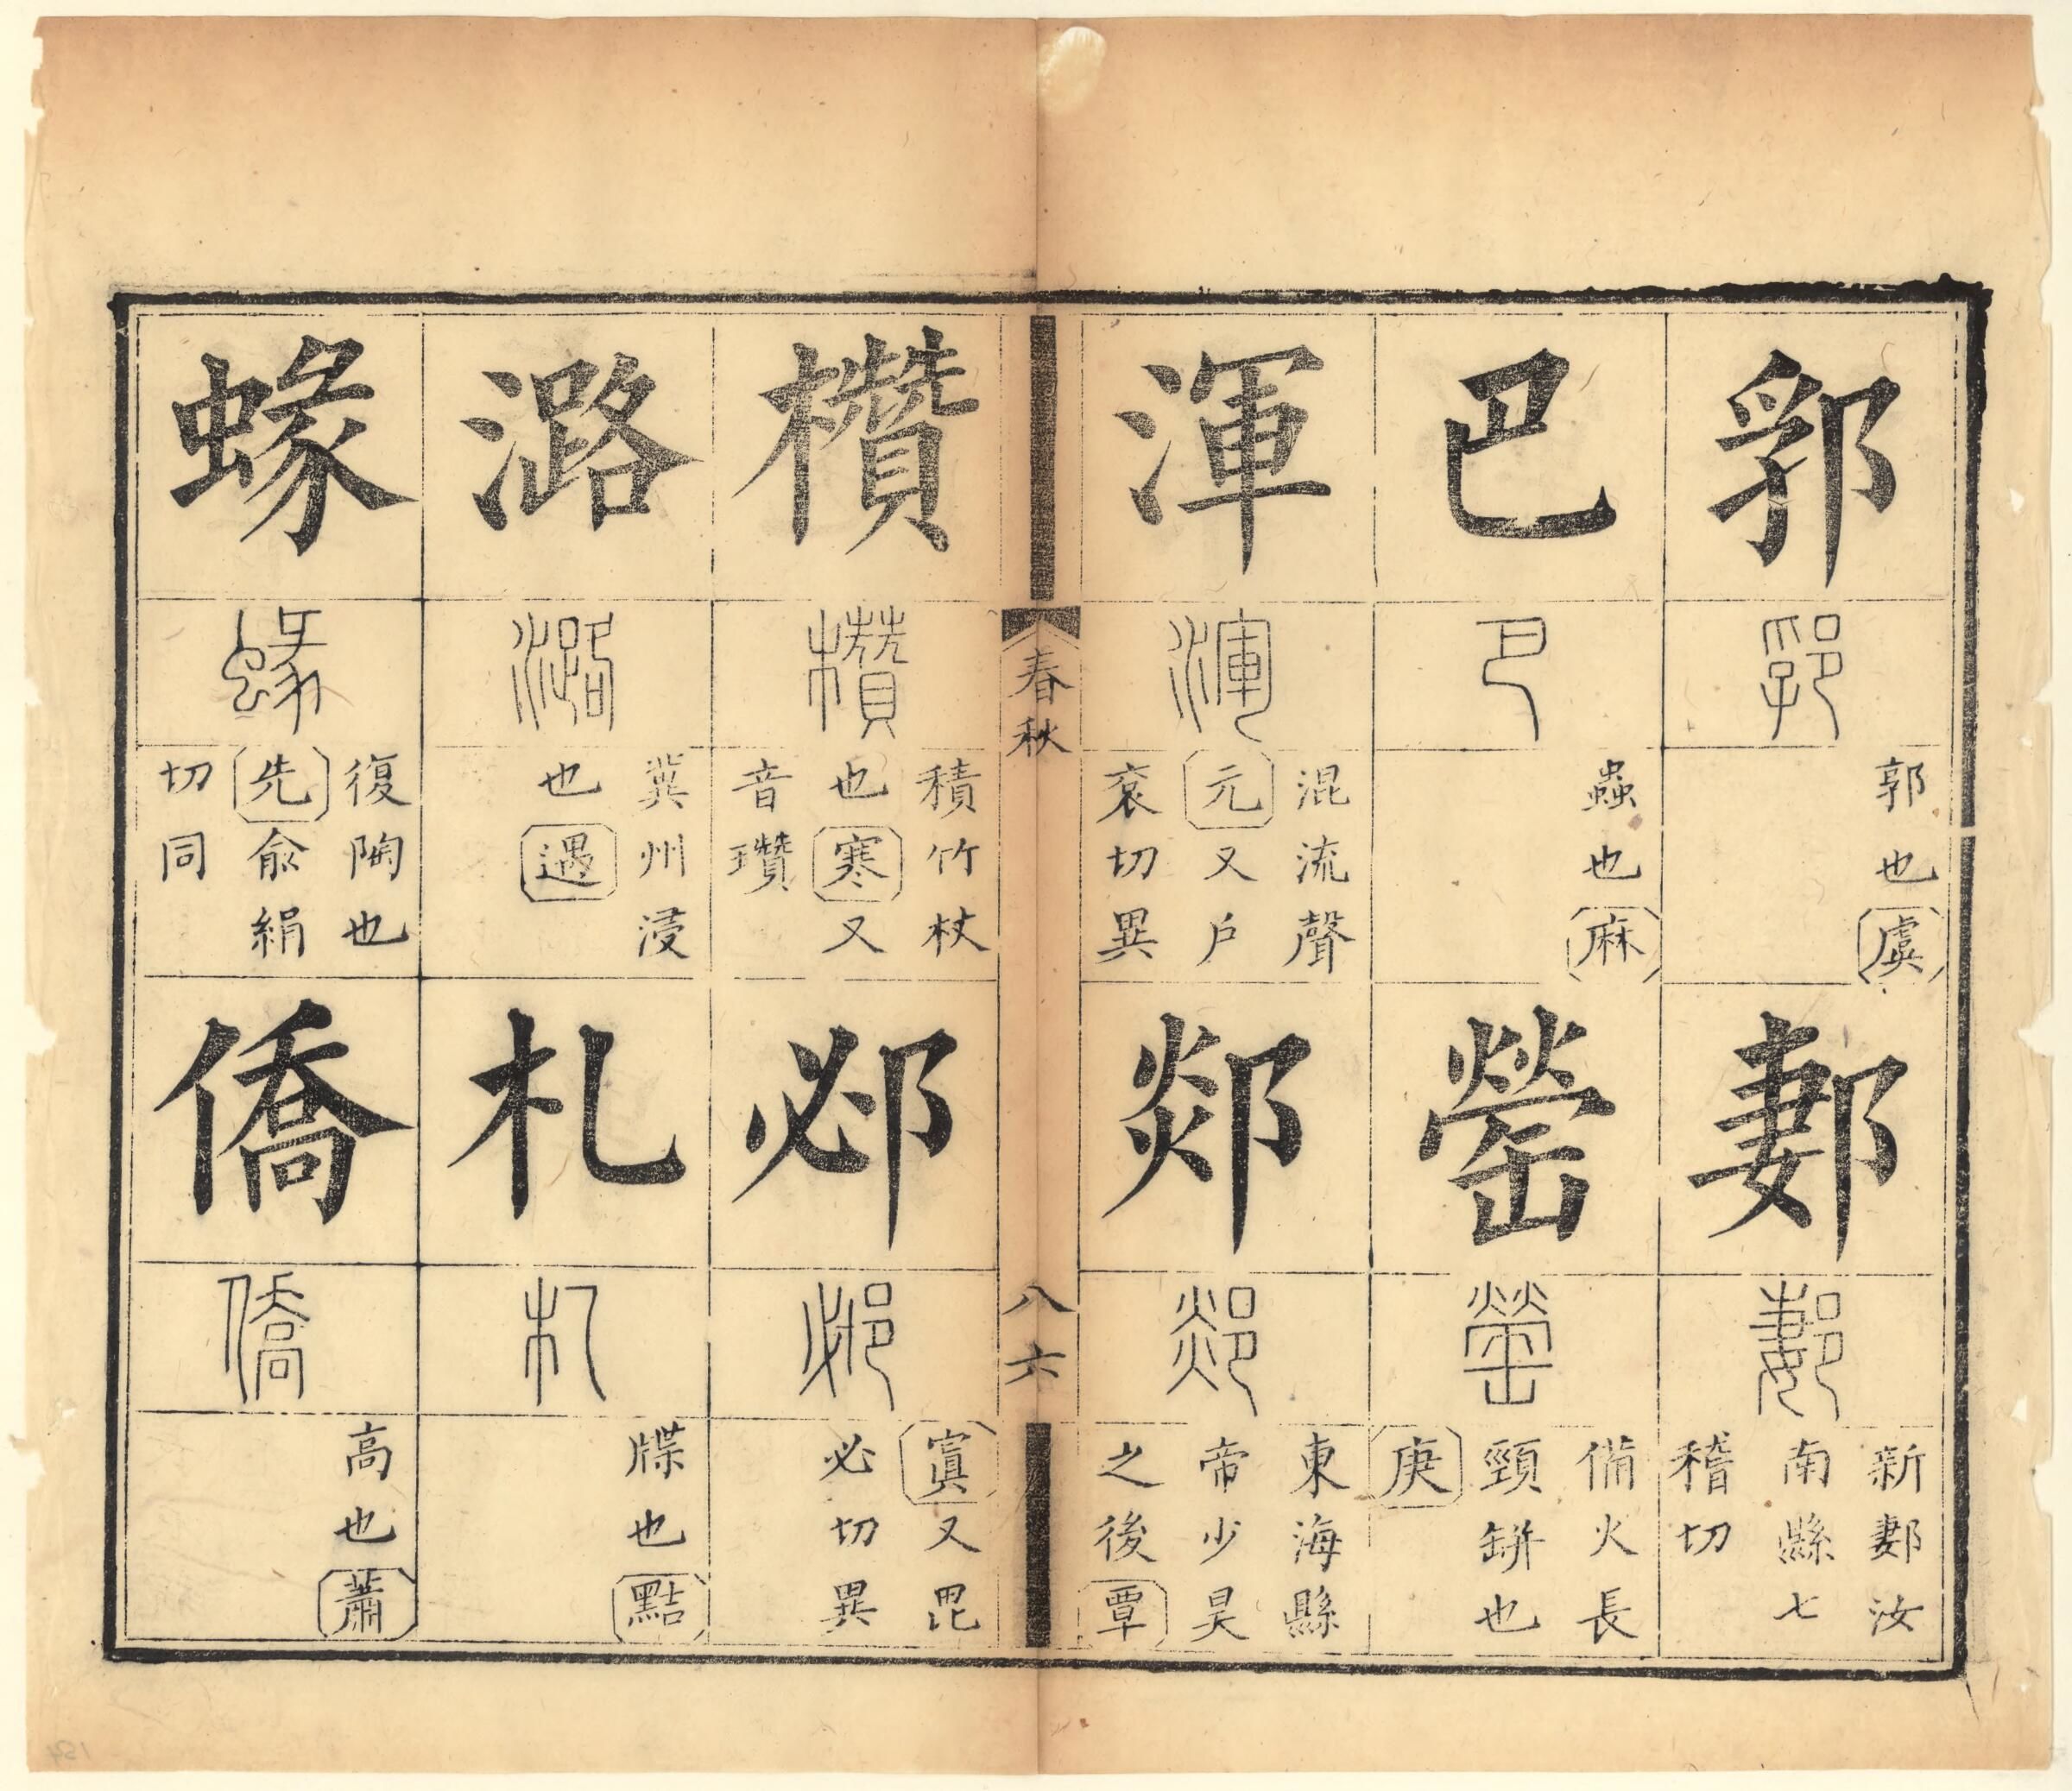 郛
郛
郭也虞
郪
郪
新郪汝
南縣七
稽切
巴
巴
蟲也麻
罃
罃
備火長
頸缾也
庚
渾
渾
混流聲
元又戶
衮切異
郯
郯
東海縣
帝少昊
之後覃
春秋
八六
欑
欑
積竹杖
也寒又
音瓚
邲
邲
寘又毘
必切異
潞
潞
冀州浸
也遇
札
札
牒也黠
蝝
蝝
復陶也
先俞絹
切同
僑
僑
高也蕭